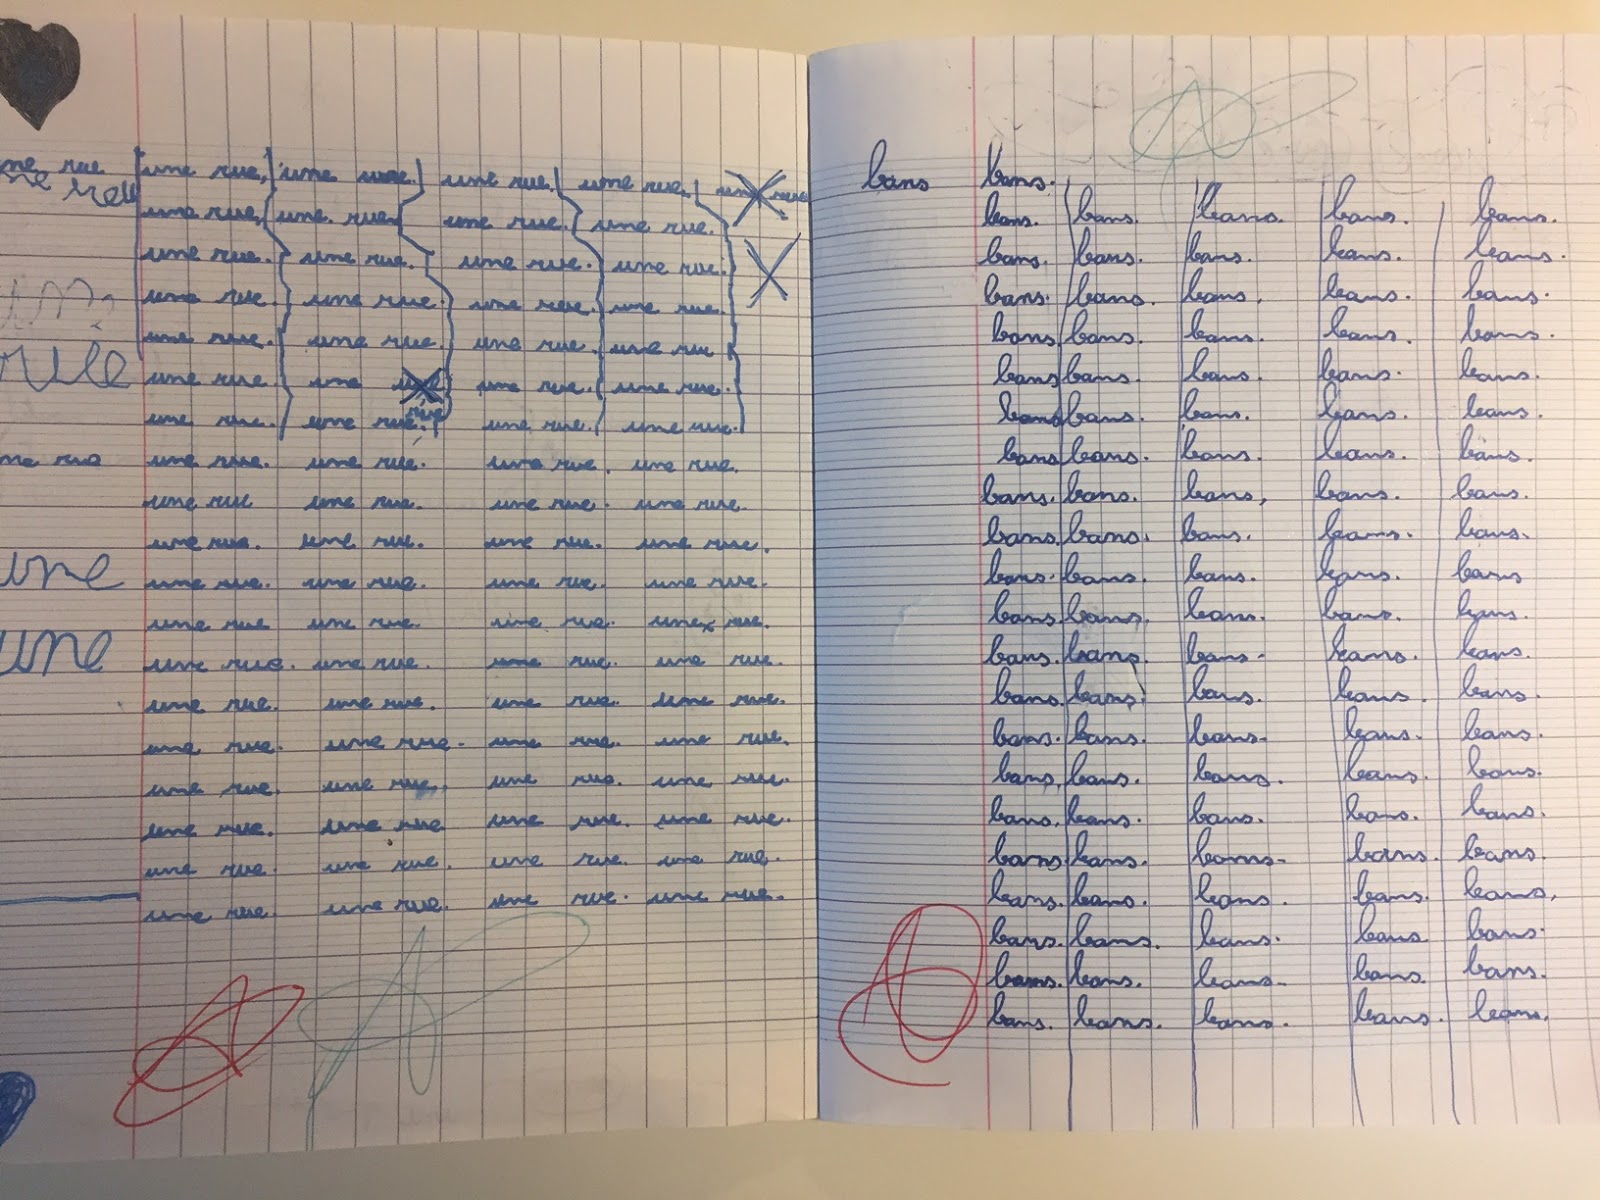 une rue une rue, une rue. une rue. une rue.
une rue, une rue. une rue. une rue.
une rue. une rue. une rue. une rue.
une rue. une rue. une rue. une rue.
une rue. une rue. une rue. une rue
rue une rue. une rue une rue. une rue.
une rue. une rue. une rue. une rue.
une rue. une rue. une rue. une rue.
une rue une rue. une rue. une rue.
une rue. une rue. une rue. une rue.
une une rue. une rue. une rue. une rue.
une rue une rue. une rue. une rue.
une une rue. une rue. une rue. une rue.
une rue. une rue. une rue. une rue.
une rue. une rue. une rue. une rue.
une rue. une rue. une rue. une rue.
une rue. une rue une rue. une rue.
une rue. une rue. une rue. une rue.
une rue. une rue. une rue. une rue.
bans bans.
bans. bans. bans. bans. bans.
bans. bans. bans. bans. bans.
bans. bans. bans. bans. bans.
bans bans. bans. bans. bans.
bans bans. bans. bans. bans.
bans bans. bans. bans. bans.
bans bans. bans. bans. bans.
bans. bans. bans, bans. bans.
bans. bans. bans. bans. bans.
bans. bans. bans. bans. bans
bans. bans. bans. bans. bans.
bans. bans. bans. bans. bans.
bans. bans. bans. bans. bans.
bans. bans. bans. bans. bans.
bans, bans. bans. bans. bans.
bans, bans. bans. bans. bans.
bans bans. bans. bans. bans.
bans. bans. bans. bans. bans,
bans. bans. bans. bans bans.
bans. bans. bans. bans. bans.
bans. bans. bans. bans. bans.